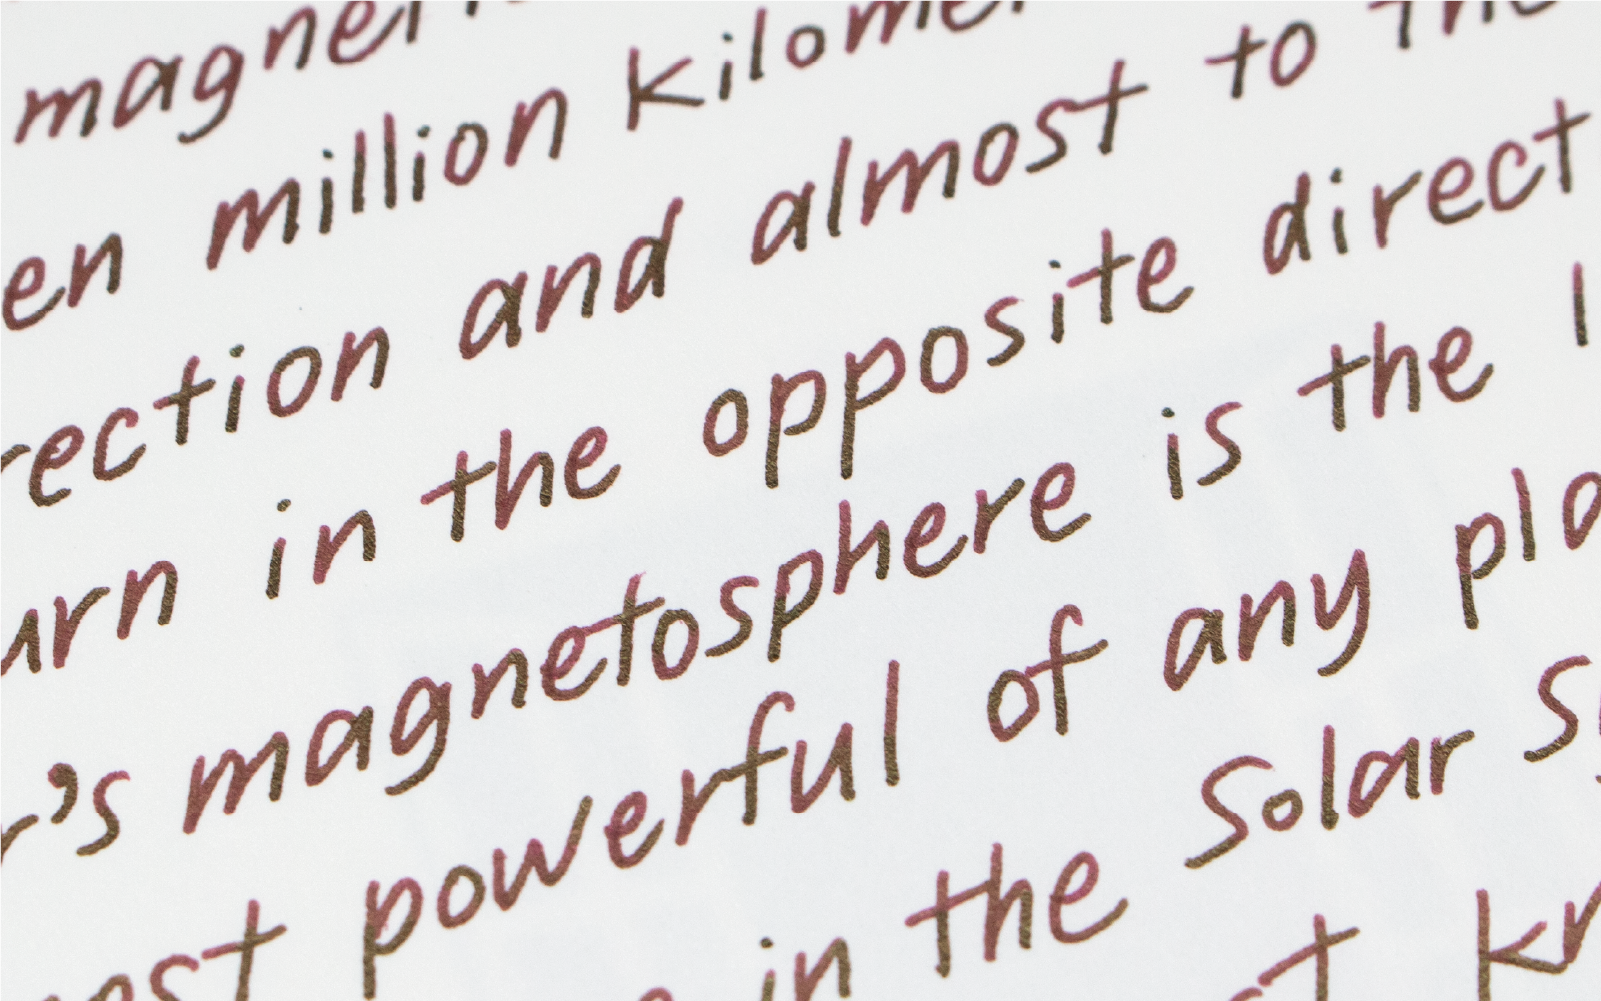 magne
en million kilome
rection and almost to the
urn in the opposite direct
r's magnetosphere is the l
ost powerful of any pla
in the Solar Sy
st kn